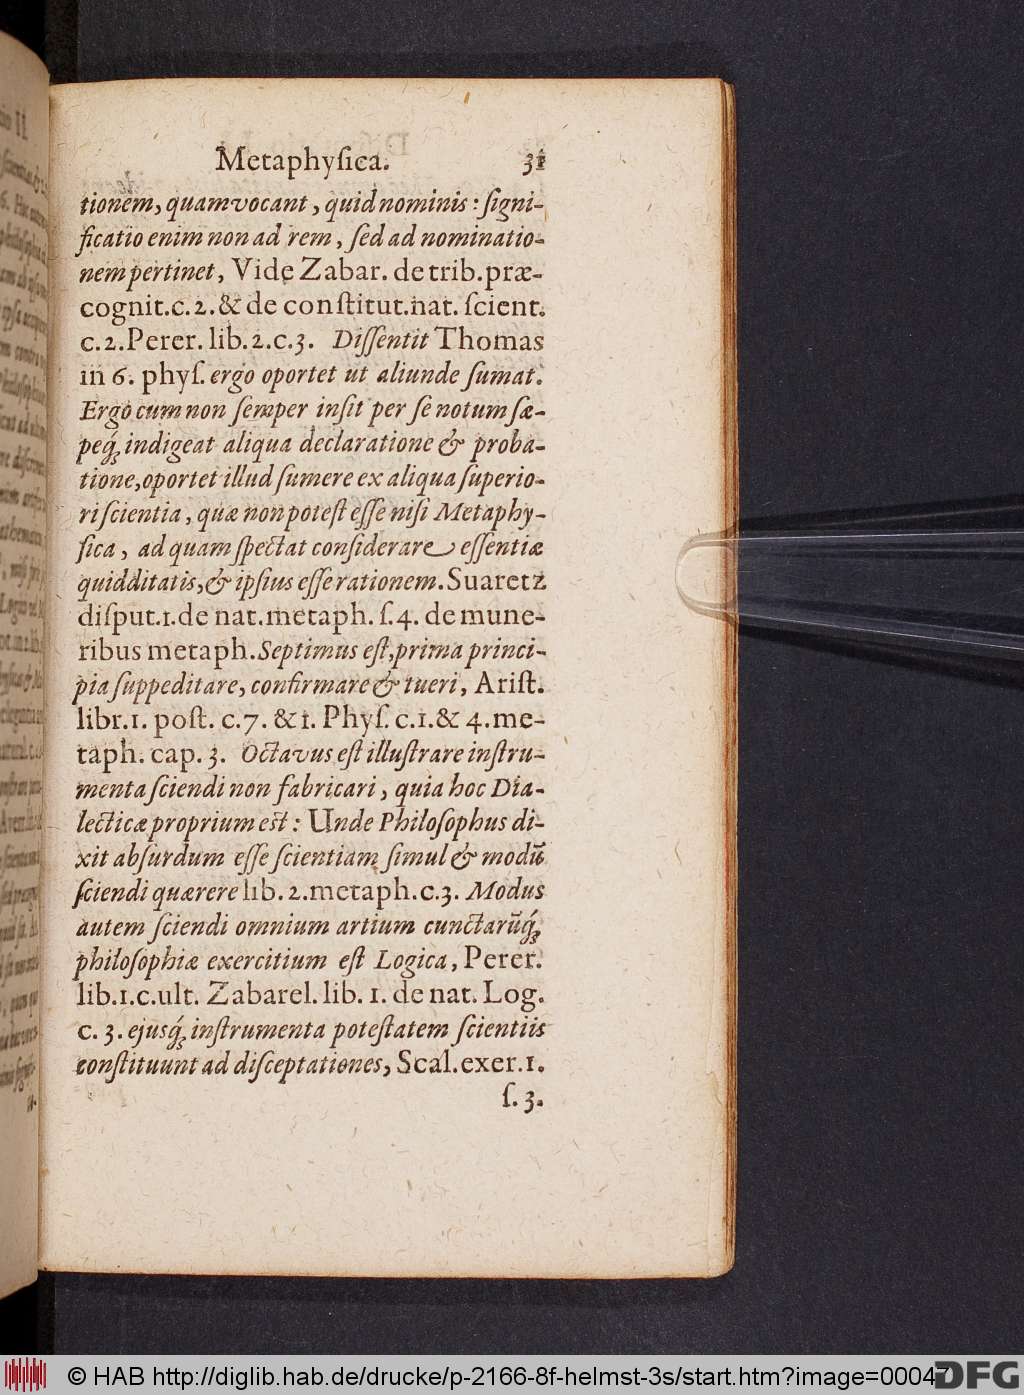 Metaphyſica. 31
tionem, quam vocant, quid nominis: ſigni-
ficatio enim non ad rem, ſed ad nominatio-
nem pertinet, Vide Zabar. de trib. præ-
cognit. c. 2. & de conſtitut. nat. ſcient.
c. 2. Perer. lib. 2. c. 3. Diſſentit Thomas
in 6. phyſ. ergo oportet ut aliunde ſumat.
Ergo cum non ſemper inſit per ſe notum ſæ-
peq́; indigeat aliqua declaratione & proba-
tione, oportet illud ſumere ex aliqua ſuperio-
ri ſcientia, quæ non poteſt eſſe niſi Metaphy-
ſica, ad quam ſpectat conſiderare eſſentiæ
quidditatis, & ipſius eſſe rationem. Suaretz
diſput. 1. de nat. metaph. ſ. 4. de mune-
ribus metaph. Septimus eſt, prima princi-
pia ſuppeditare, confirmare & tueri, Ariſt.
libr. 1. poſt. c. 7. & 1. Phyſ. c. 1. & 4. me-
taph. cap. 3. Octavus eſt illuſtrare inſtru-
menta ſciendi non fabricari, quia hoc Dia-
lecticæ proprium est: Unde Philoſophus di-
xit abſurdum eſſe ſcientiam ſimul & modũ
ſciendi quærere lib. 2. metaph. c. 3. Modus
autem ſciendi omnium artium cunctarũq́;
philoſophiæ exercitium eſt Logica, Perer.
lib. 1. c. ult. Zabarel. lib. 1. de nat. Log.
c. 3. ejusq́; inſtrumenta poteſtatem ſcientiis
conſtituunt ad diſceptationes, Scal. exer. 1.
ſ. 3.
© HAB http://diglib.hab.de/drucke/p-2166-8f-helmst-3s/start.htm?image=00047
DFG